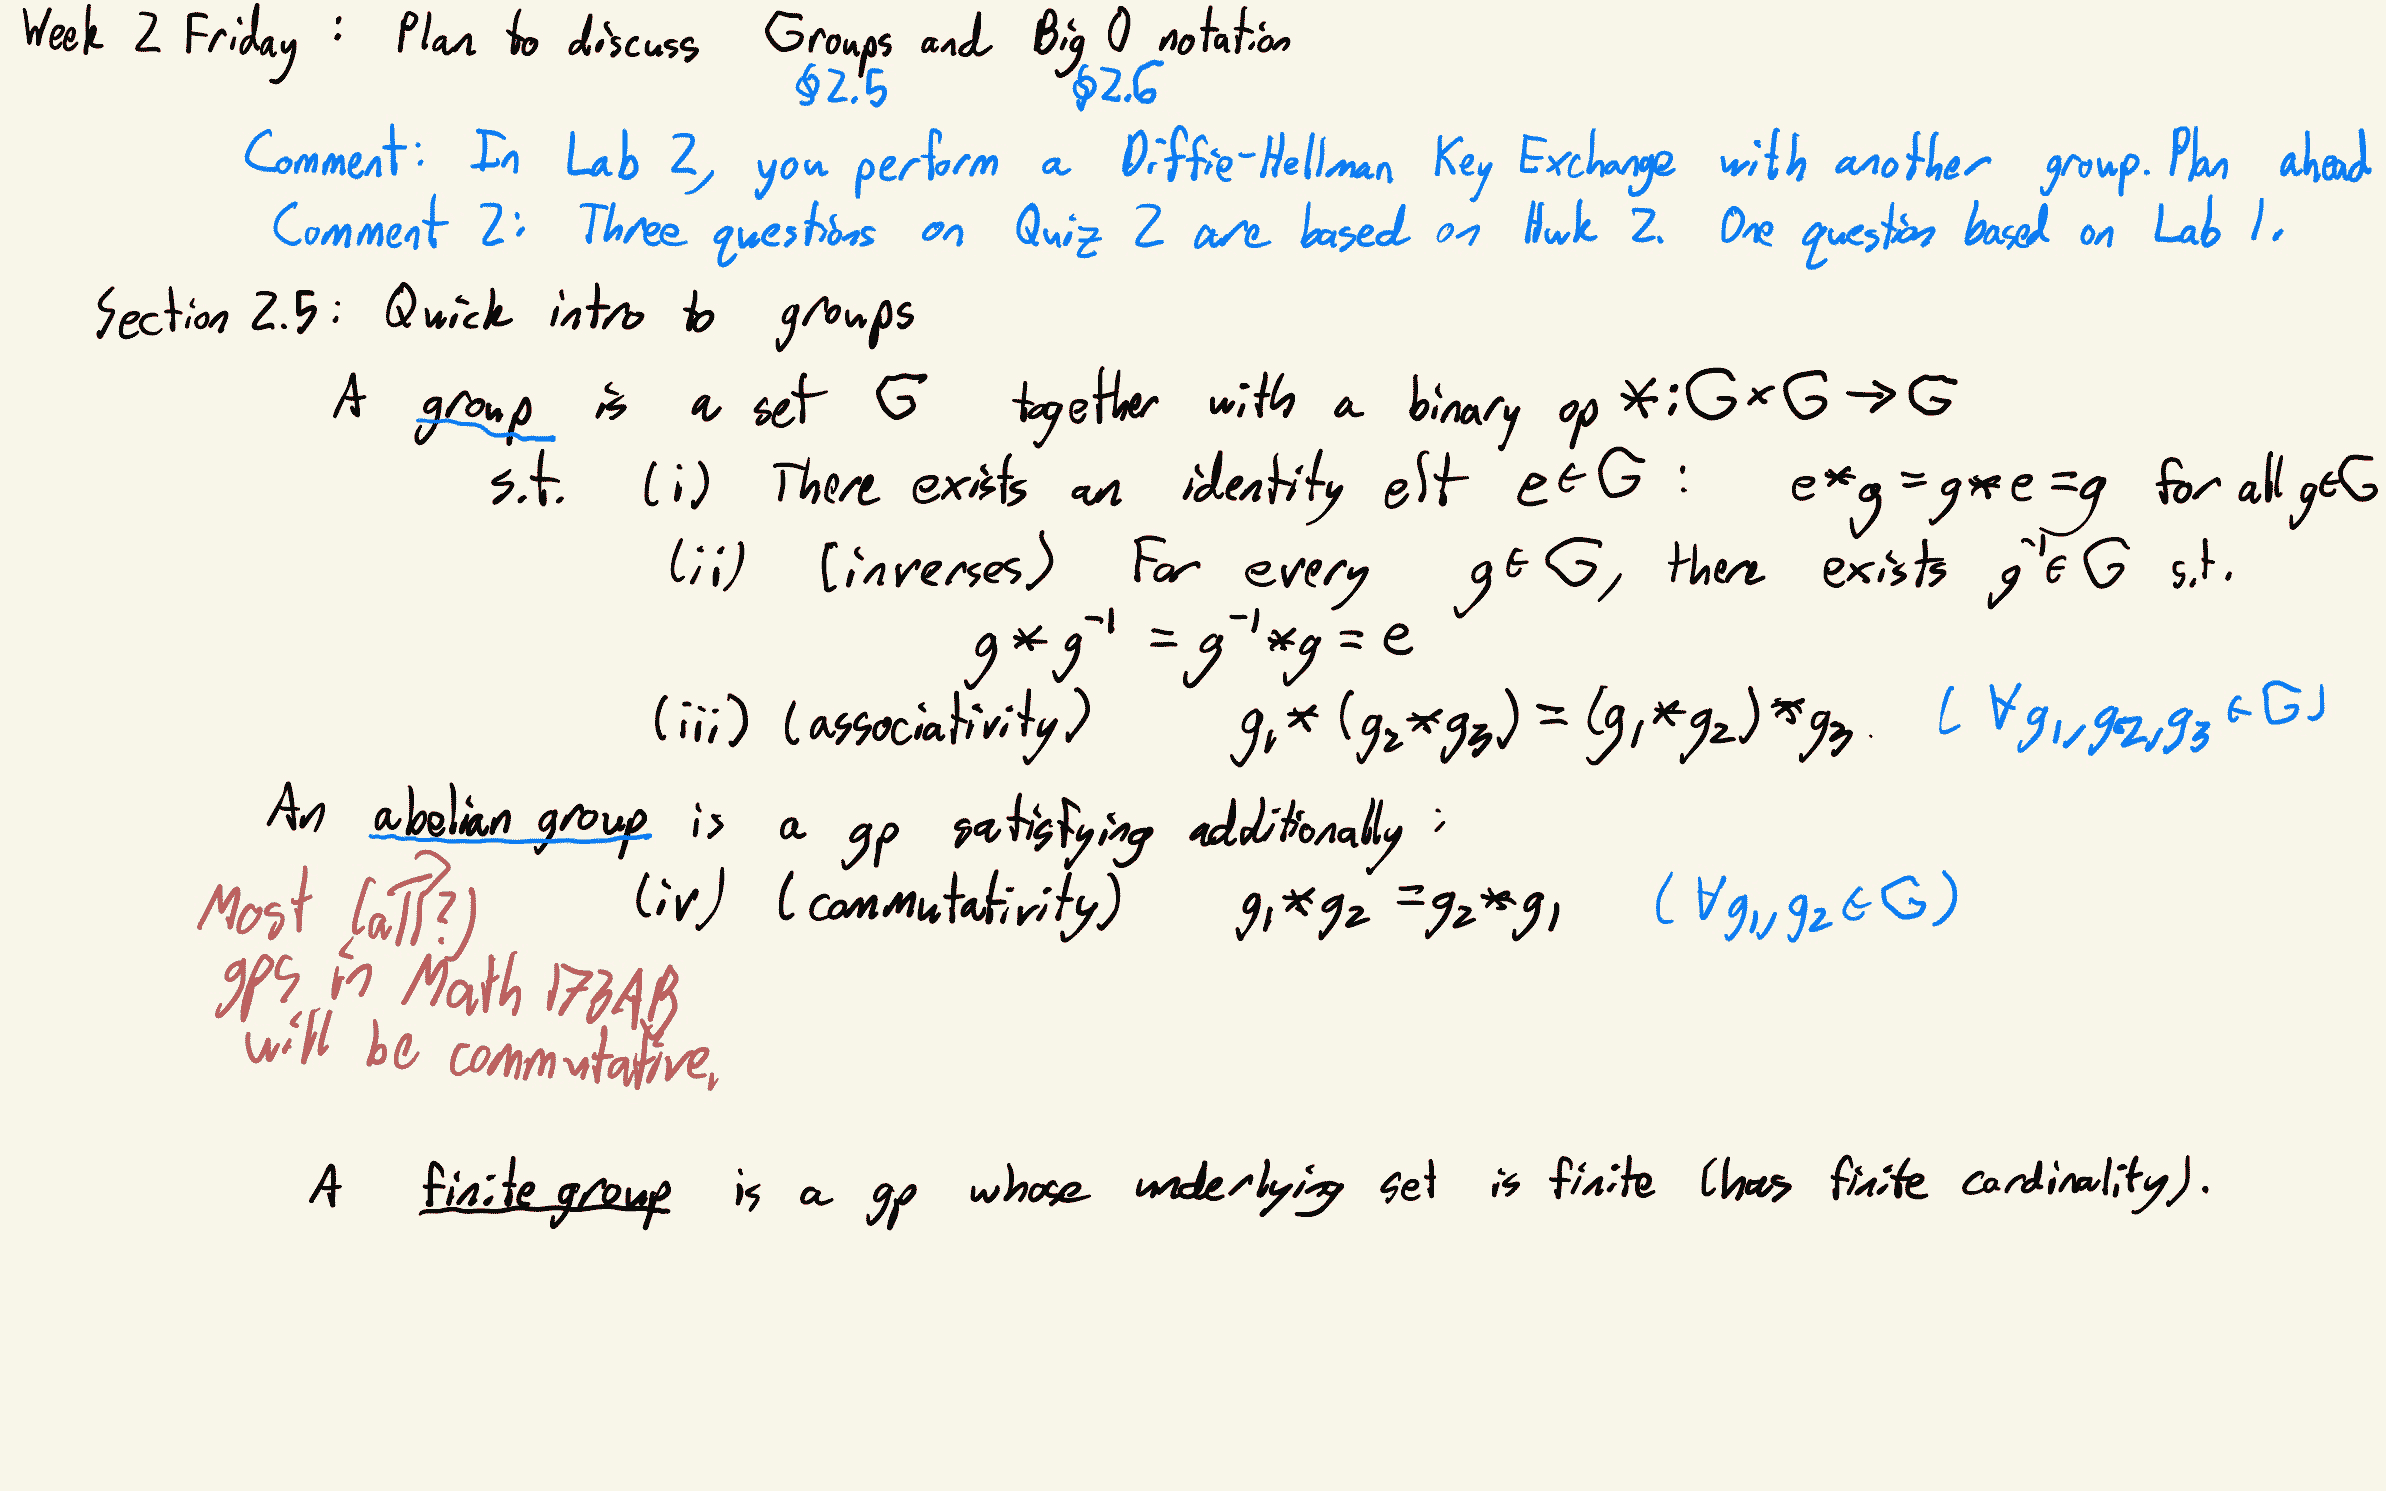 Week 2 Friday : Plan to discuss Groups and Big O notation
§2.5 §2.6
Comment: In Lab 2, you perform a Diffie-Hellman Key Exchange with another group. Plan ahead
Comment 2: Three questions on Quiz 2 are based on Hwk 2. One question based on Lab 1.
Section 2.5: Quick intro to groups
A group is a set G together with a binary op *: G × G → G
s.t. (i) There exists an identity elt e ∈ G : e * g = g * e = g for all g ∈ G
(ii) (inverses) For every g ∈ G, there exists g⁻¹ ∈ G s.t.
g * g⁻¹ = g⁻¹ * g = e
(iii) (associativity) g₁ * (g₂ * g₃) = (g₁ * g₂) * g₃. (∀ g₁, g₂, g₃ ∈ G)
An abelian group is a gp satisfying additionally :
(iv) (commutativity) g₁ * g₂ = g₂ * g₁ (∀ g₁, g₂ ∈ G)
Most (all?)
gps in Math 173AB
will be commutative.
A finite group is a gp whose underlying set is finite (has finite cardinality).